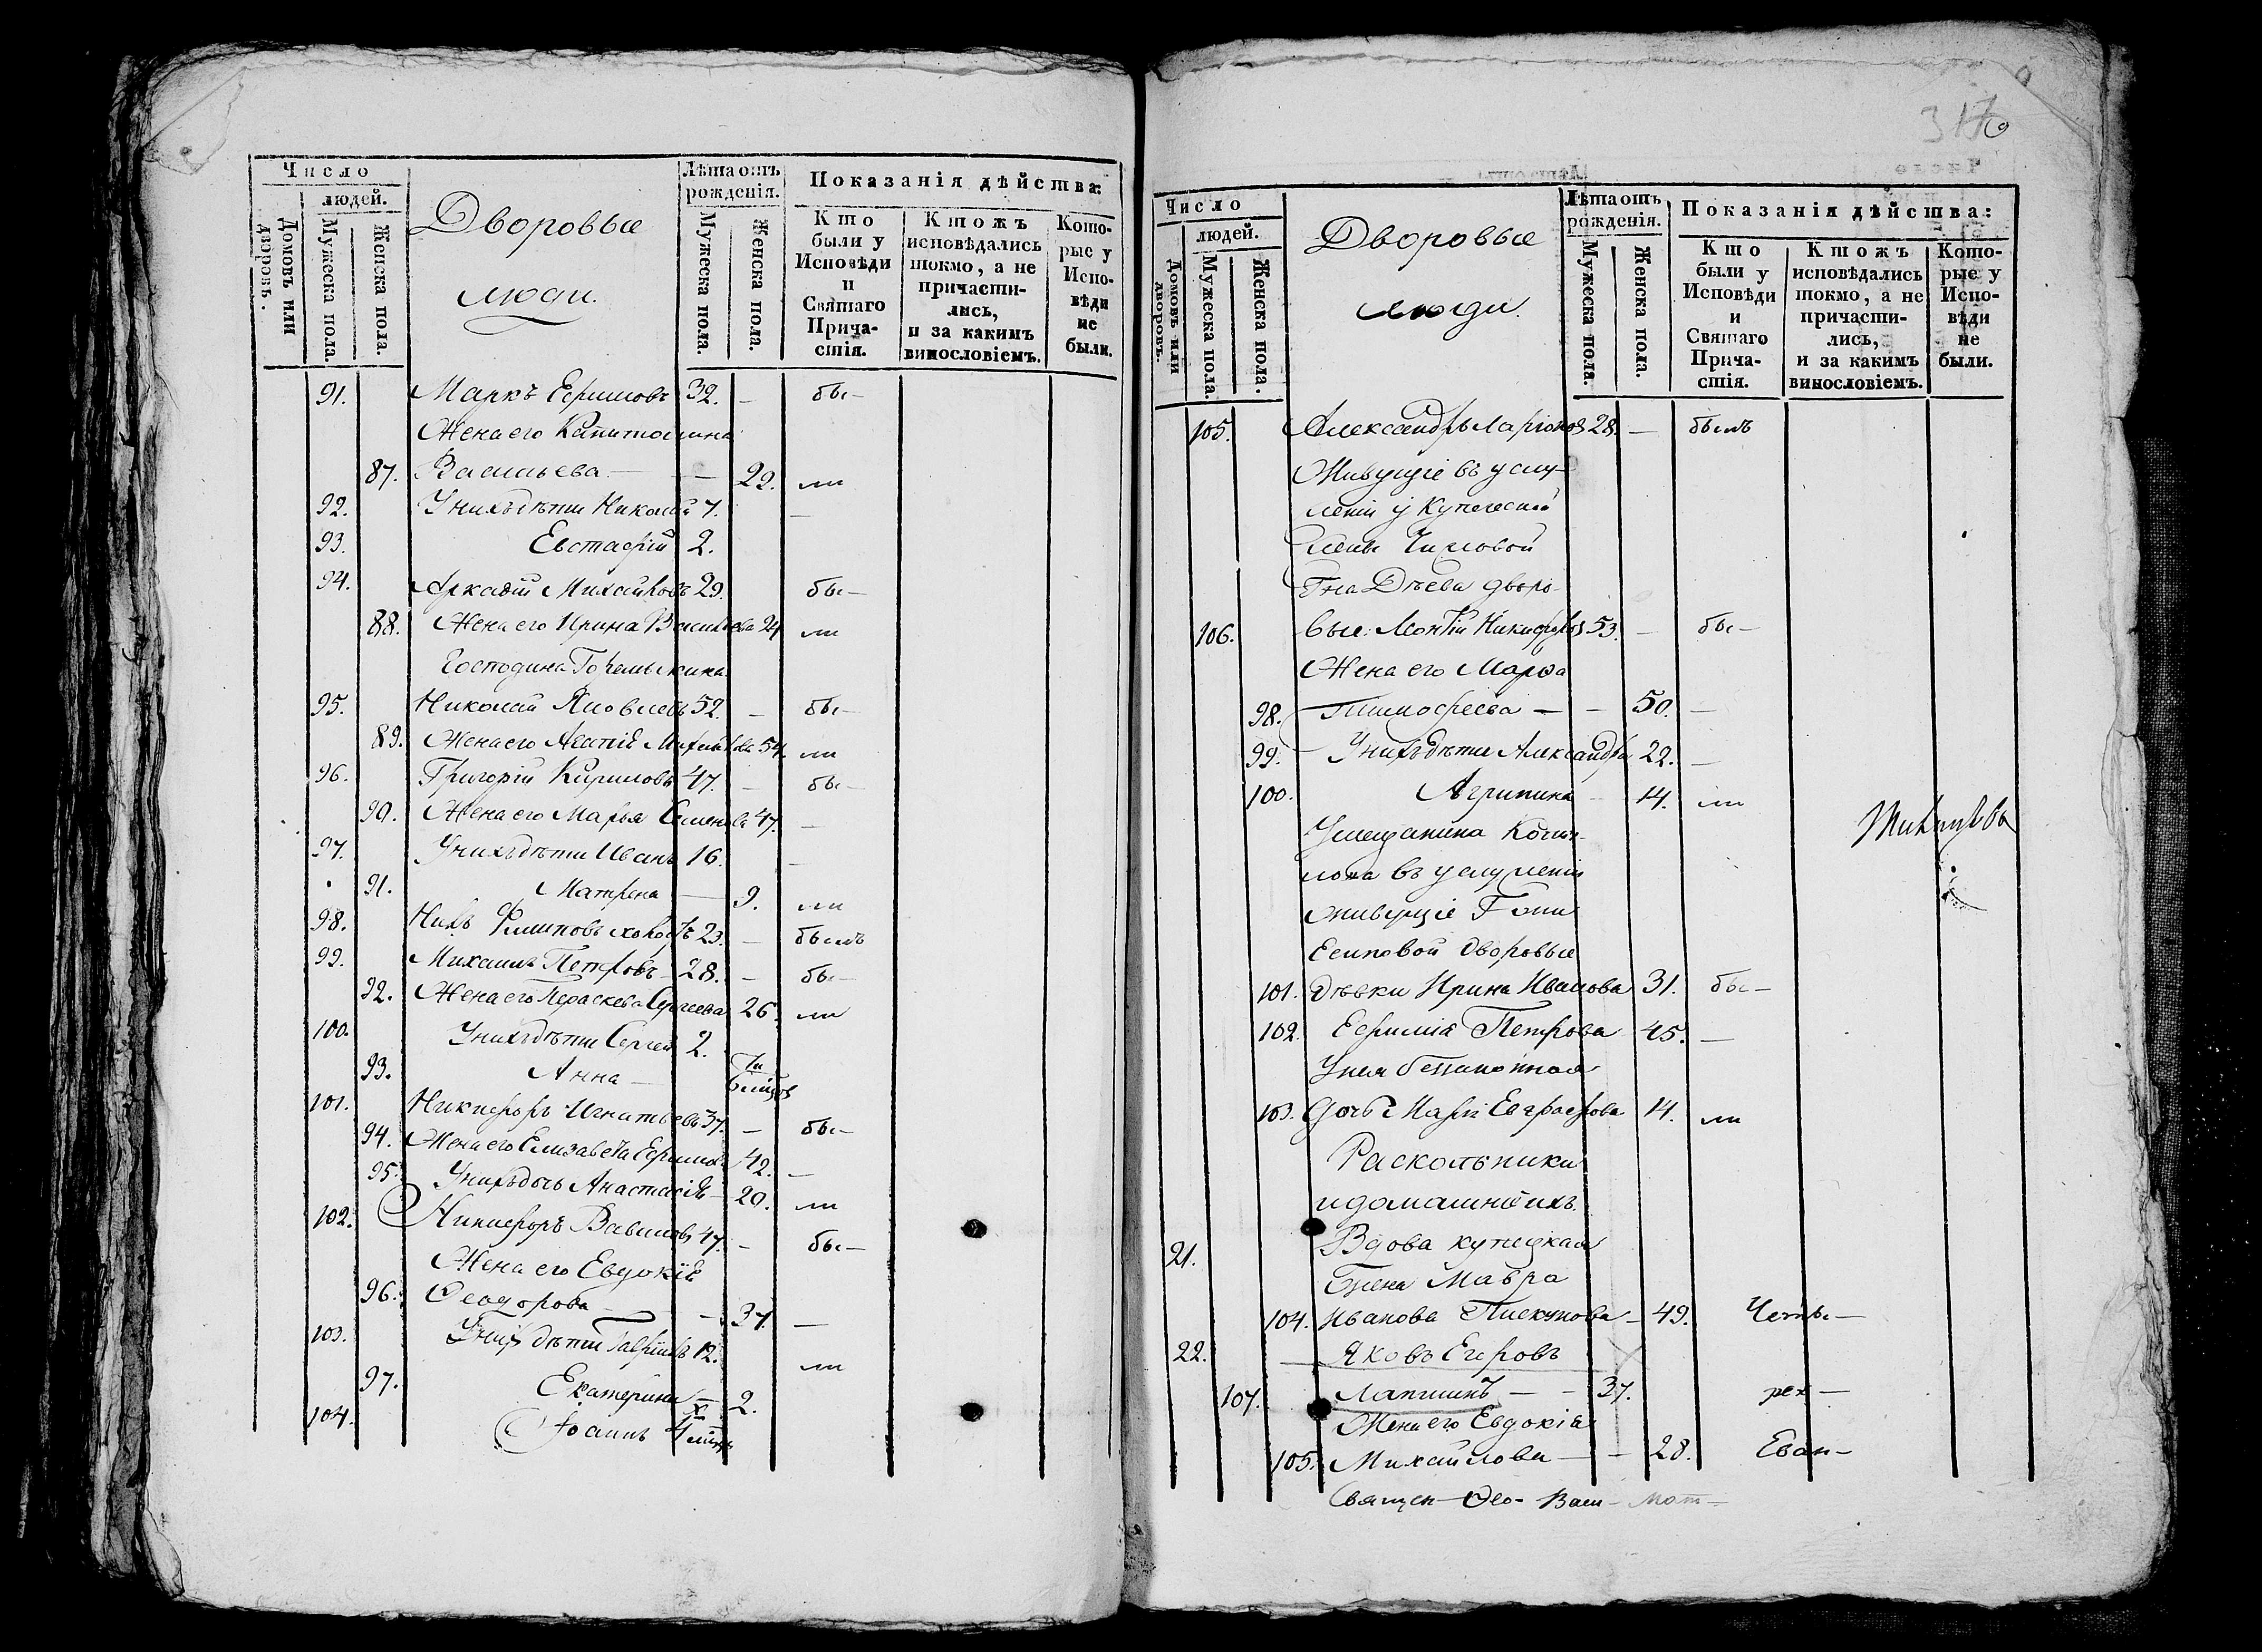 Число
людей.
Домовъ или дворовъ.
Мужеска пола.
Женска пола.
Дворовые
люди.
Лѣта отъ рожденія.
Мужеска пола.
Женска пола.
Показанія дѣйства:
Кто были у Исповѣди и Святаго Причастія.
Ктожъ исповѣдались токмо, а не причастились, и за какимъ винословіемъ.
Которые у Исповѣди не были.
91. Маркъ Ефимовъ 32. — бы—
Жена его Капитолина
87. Васильева — — 22. ли
92. У нихъ дѣти Николай 7. —
93. Евстафій 2.
94. Аркадій Михайловъ 29. бы—
88. Жена его Ирина Васильева 24 ли
Господина Горемыкина
95. Николай Яковлевъ 52. — бы—
89. Жена его Агапія Михайлова 54. ли
96. Григорій Кириловъ 47. — бы—
90. Жена его Марья Семенова 47. —
97. У нихъ дѣти Иванъ 16. —
91. Матрена — 9. ли
98. Нилъ Филиповъ холостъ 23. — былъ
99. Михаилъ Петровъ — 28. — бы—
92. Жена его Параскева Сергеева 26. ли
100. У нихъ дѣти Сергей 2.
93. Анна —
101. Никифоръ Игнатьевъ 37. — бы—
94. Жена его Елизавета Ефимова 42. —
95. У нихъ дочь Анастасія — 20. ли
102. Никифоръ Вавиловъ 47. — бы—
Жена его Евдокія
96. Феодорова — — 37. —
103. У нихъ дѣти Гавріилъ 12. ли
97. Екатерина — 2.
104. Іоаннъ
317
Число
людей.
Домовъ или дворовъ.
Мужеска пола.
Женска пола.
Дворовые
люди.
Лѣта отъ рожденія.
Мужеска пола.
Женска пола.
Показанія дѣйства:
Кто были у Исповѣди и Святаго Причастія.
Ктожъ исповѣдались токмо, а не причастились, и за какимъ винословіемъ.
Которые у Исповѣди не были.
105. Александръ Ларіонов 28. — былъ
Живущіе въ услу-
женіи у Купеческой
жены
Гна Дѣева дворо-
106. вые: Леонтій Никифоров 53. — бы—
Жена его Марѳа
98. Тимофеева — — 50. —
99. У нихъ дѣти Александра 22. —
100. Агрипина — 14. ли
У мещанина
въ услуженіи
живущіе Гжи
Есиповой дворовые
101. дѣвки Ирина Иванова 31. бы—
102. Ефимія Петрова 45. —
У нея беззаконная
103. дочь Марія Евграфова 14. ли
Раскольники
и домашніе ихъ.
21. Вдова купецкая
жена Мавра
104. Иванова Пискунова — 49.
22. Яковъ Егоровъ
107. Лапшинъ — — 37. рех—
Жена его Евдокія
105. Михайлова — — 28. Еван—
Священ— Ѳео— Васи— Мат—